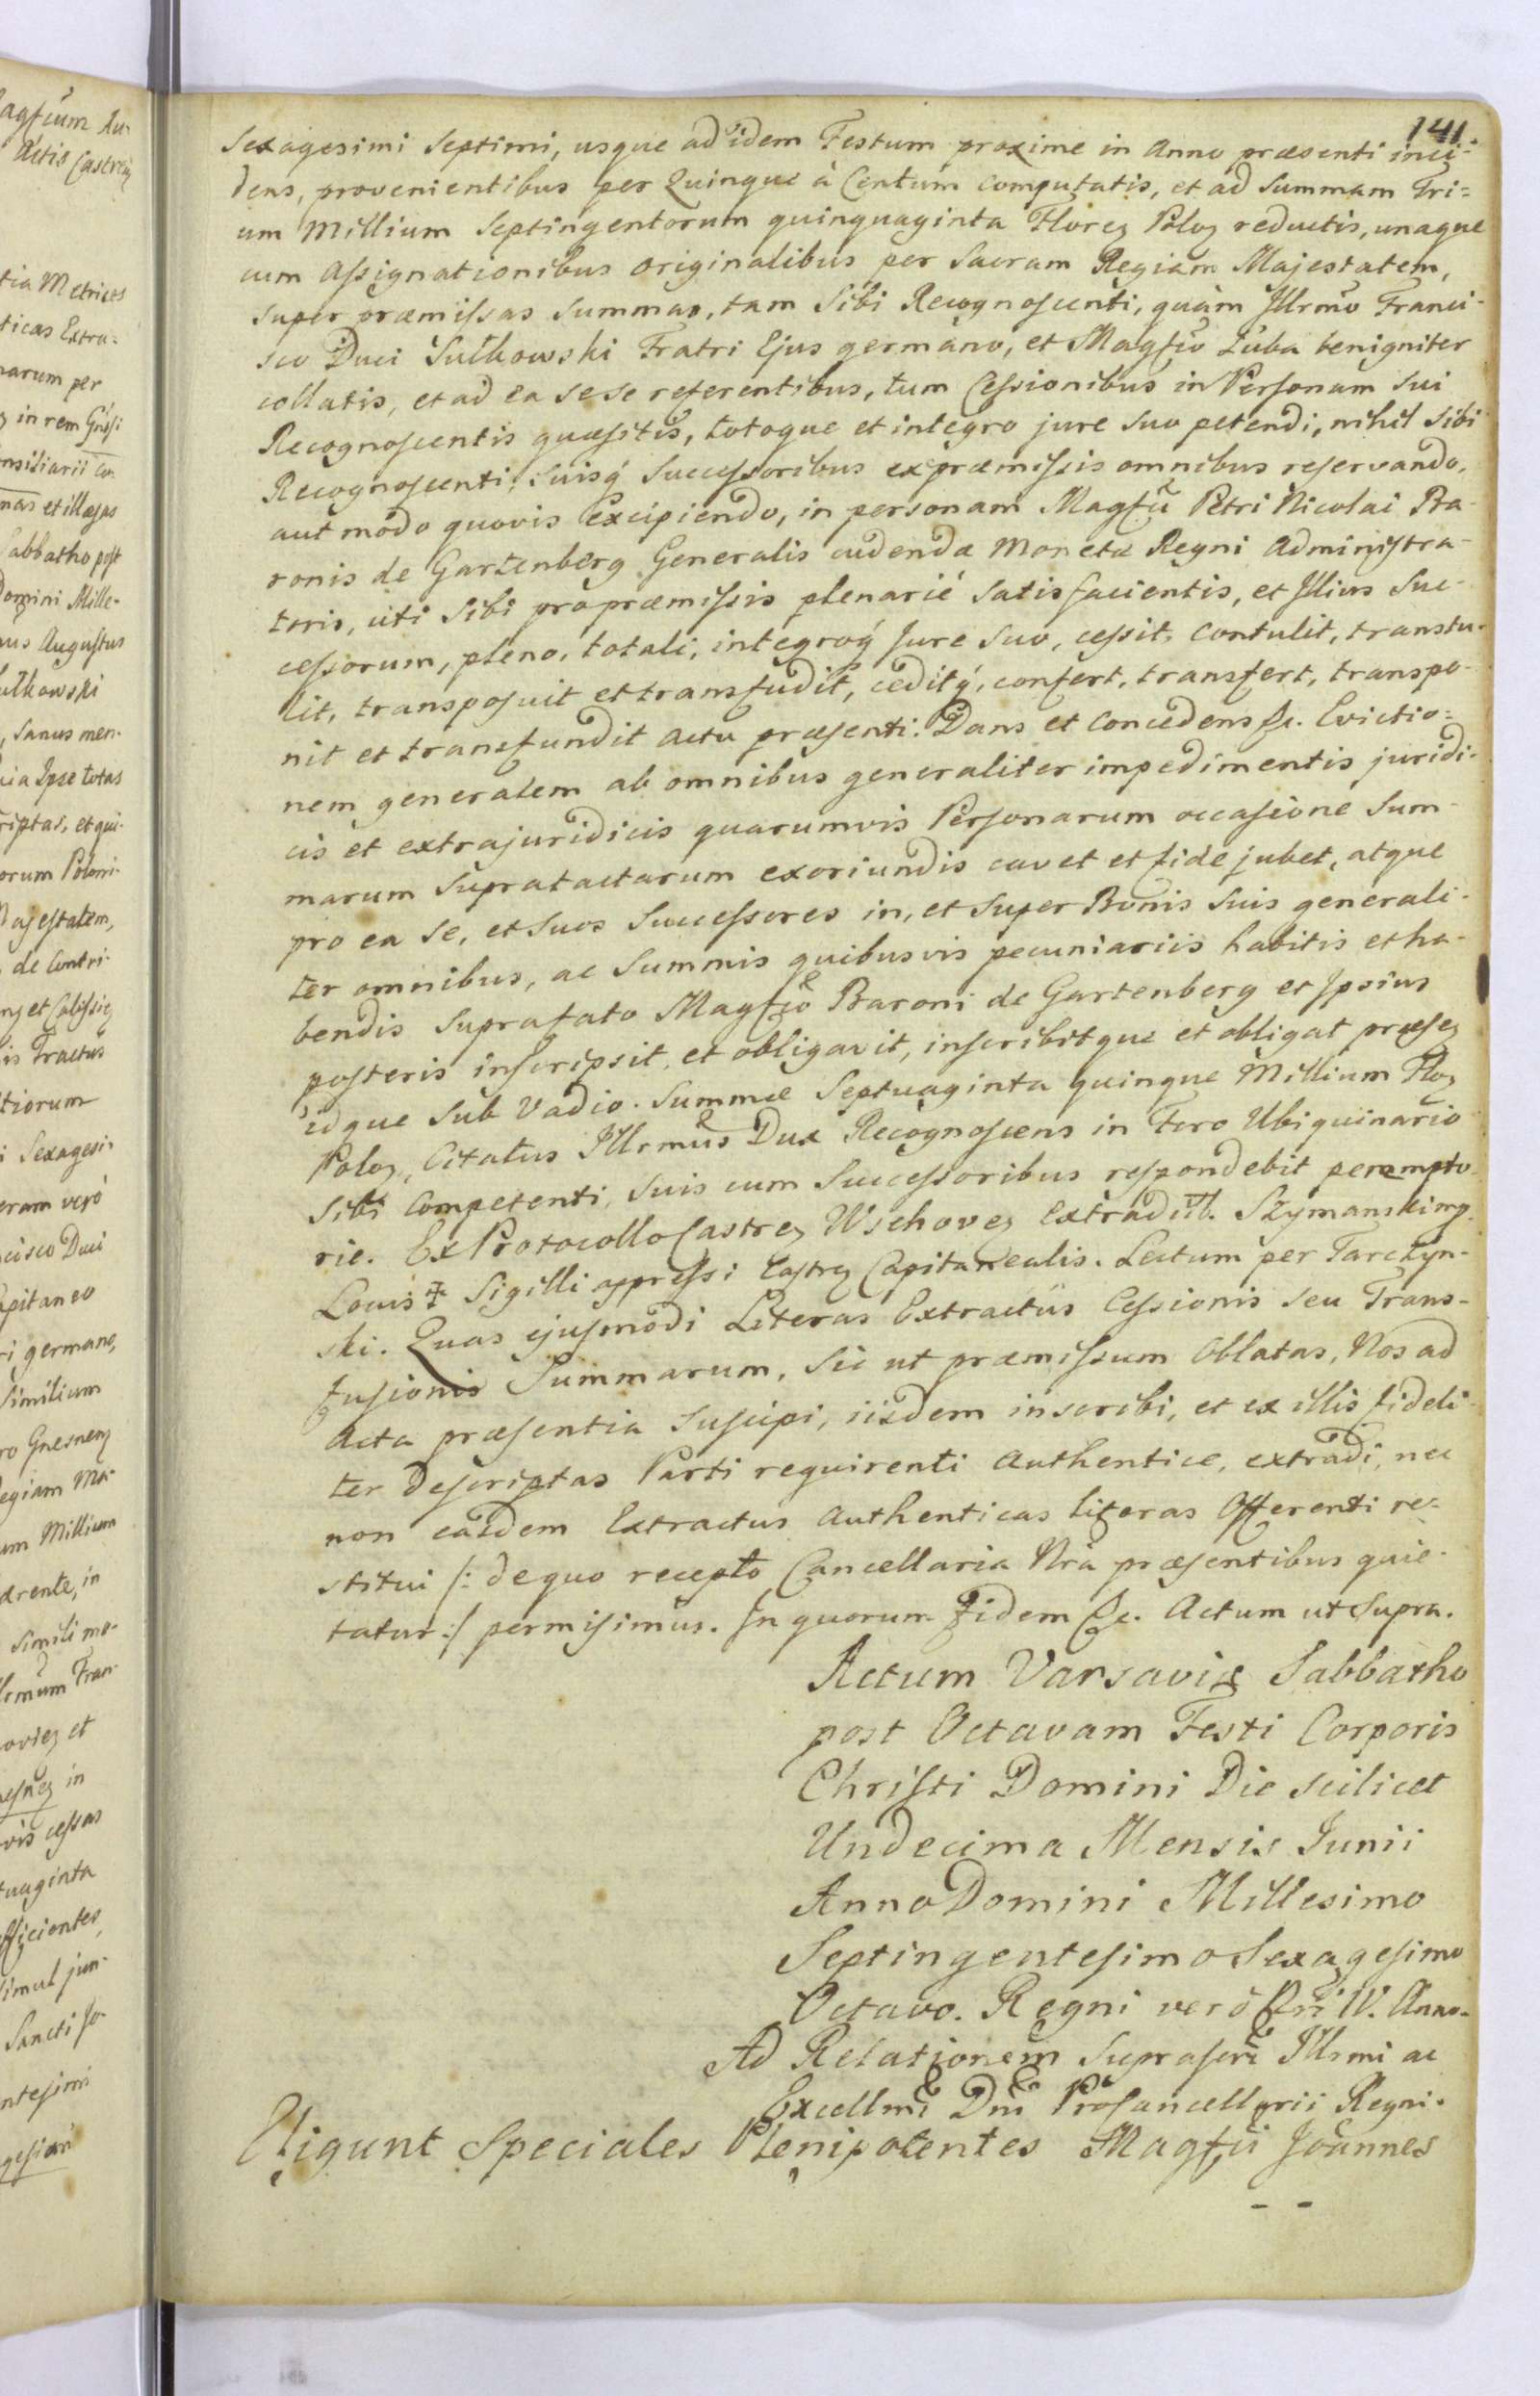 141.
Sexagesimi Septimi, usque ad idem Festum proxime in Anno præsenti inci-
dens, provenientibus per Quinque à Centum computatis, et ad Summam Tri=
um Millium Septingentorum quinquaginta Floreꝫ Poloꝫ reductis, unaque
cum Assignationibus originalibus per Sacram Regiam Majestatem,
super præmissas summas, tam Sibi Recognoscenti, quàm Illrmo Franci-
sco Duci Sułkowski Fratri Ejus germano, et Magfco Łuba benigniter
collatis, et ad ea sese referentibus, tum Cessionibus in Personam sui
Recognoscentis quæsitis, totoque et integro jure suo petendi, nihil Sibi
Recognoscenti, Suisq́ Successoribus ex præmissis omnibus reservando,
aut modo quovis excipiendo, in personam Magfci Petri Nicolai Ba-
ronis de Gartenberg Generalis cudendæ Monetæ Regni Administra-
toris, uti Sibi pro præmissis plenarié Satisfacientis, et Illius Suc-
cessorum, pleno, totali, integroq́ Jure Suo, cessit, contulit, transtu-
lit, transposuit et transfudit, ceditq́, confert, transfert, transpo-
nit et transfundit actu præsenti. Dans et Concedens &c. Evictio=
nem generalem ab omnibus generaliter impedimentis juridi-
cis et extrajuridicis quarumvis Personarum occasione Sum-
marum supratactarum exoriundis cavet et fide jubet, atque
pro ea Se, et Suos Successores in, et super Bonis Suis generali-
ter omnibus, ac Summis quibusvis pecuniariis habitis et ha-
bendis Suprafato Magfco Baroni de Gartenberg et Ipsius
posteris inscripsit, et obligavit, inscribitque et obligat præseꝫ
idque Sub Vadio. Summæ Septuaginta quinque Millium Floꝫ
Poloꝫ, Citatus Illrmus Dux Recognoscens in Foro Ubiquinario
Sibi Competenti, suis cum Successoribus respondebit perempto-
rie. Ex Protocollo Castreꝫ Wschoveꝫ Extradit. Szymanski mp.
Louis ‡ Sigilli appressi Castreꝫ Capitanealis. Lectum per Tarczyn-
ski. Quas ejusmodi Literas Extractûs Cessionis seu Trans-
fusionis Summarum, sic ut præmissum Oblatas, Nos ad
Acta præsentia Suscipi, iisdem inscribi, et ex illis fideli-
ter Descriptas Parti requirenti Authentice, extradi, nec
non easdem Extractus Authenticas literas Offerenti re-
stitui /: de quo recepto Cancellaria Nrâ præsentibus quie-
tatur :/ permisimus. In quorum fidem &c. Actum ut Supra.
Actum Varsaviæ Sabbatho
post Octavam Festi Corporis
Christi Domini Die scilicet
Undecima Mensis Junii
Anno Domini Millesimo
Septingentesimo Sexagesimo
Octavo. Regni verò Nri IV. Anno.
Ad Relationem Suprascri Illrmi ac
Excellmi Dni ProCancellarii Regni.
Eligunt Speciales Plenipotentes Magfci Joannes